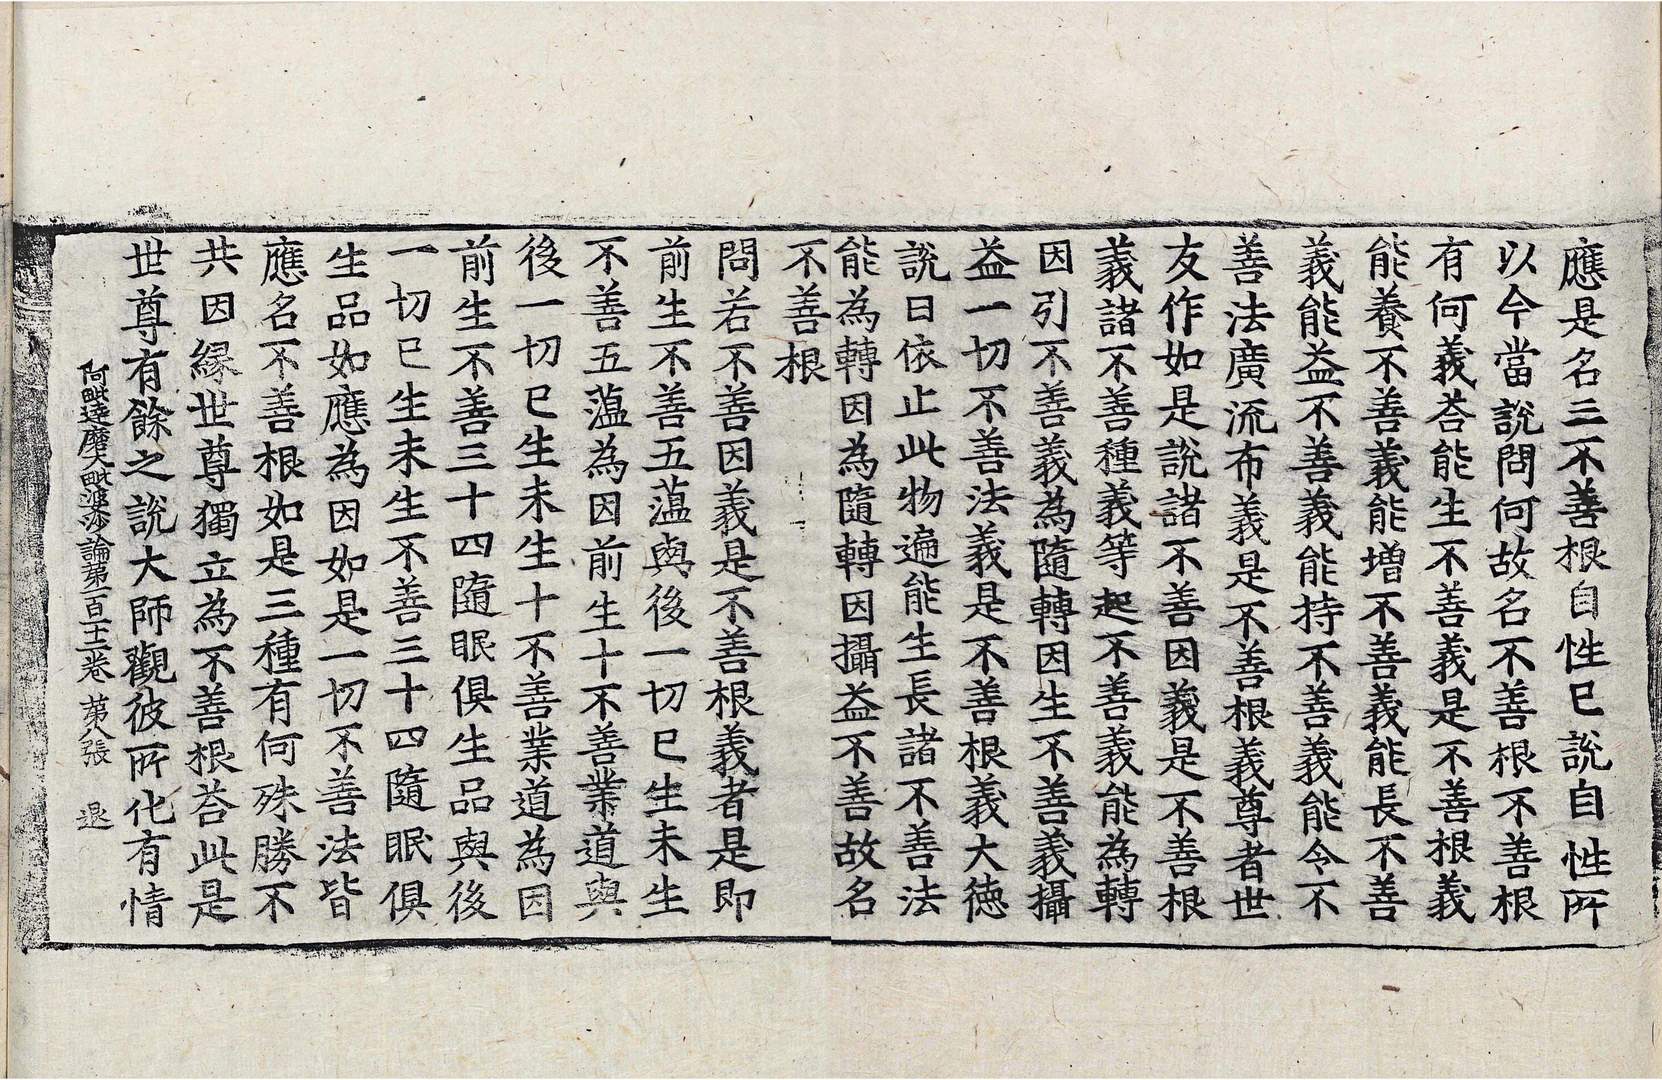 應是名三不善根自性已說自性所
以今當說問何故名不善根不善根
有何義荅能生不善義是不善根義
能養不善義能增不善義能長不善
義能益不善義能持不善義能令不
善法廣流布義是不善根義尊者世
友作如是說諸不善因義是不善根
義諸不善種義等起不善義能為轉
因引不善義為隨轉因生不善義攝
益一切不善法義是不善根義大徳
說曰依止此物遍能生長諸不善法
能為轉因為隨轉因攝益不善故名
不善根
問若不善因義是不善根義者是即
前生不善五薀與後一切已生未生
不善五薀為因前生十不善業道與
後一切已生未生十不善業道為因
前生不善三十四隨眠俱生品與後
一切已生未生不善三十四隨眠俱
生品如應為因如是一切不善法皆
應名不善根如是三種有何殊勝不
共因緣世尊獨立為不善根荅此是
世尊有餘之說大師觀彼所化有情
阿毗達磨大毗婆沙論第一百十二卷 第八張 退